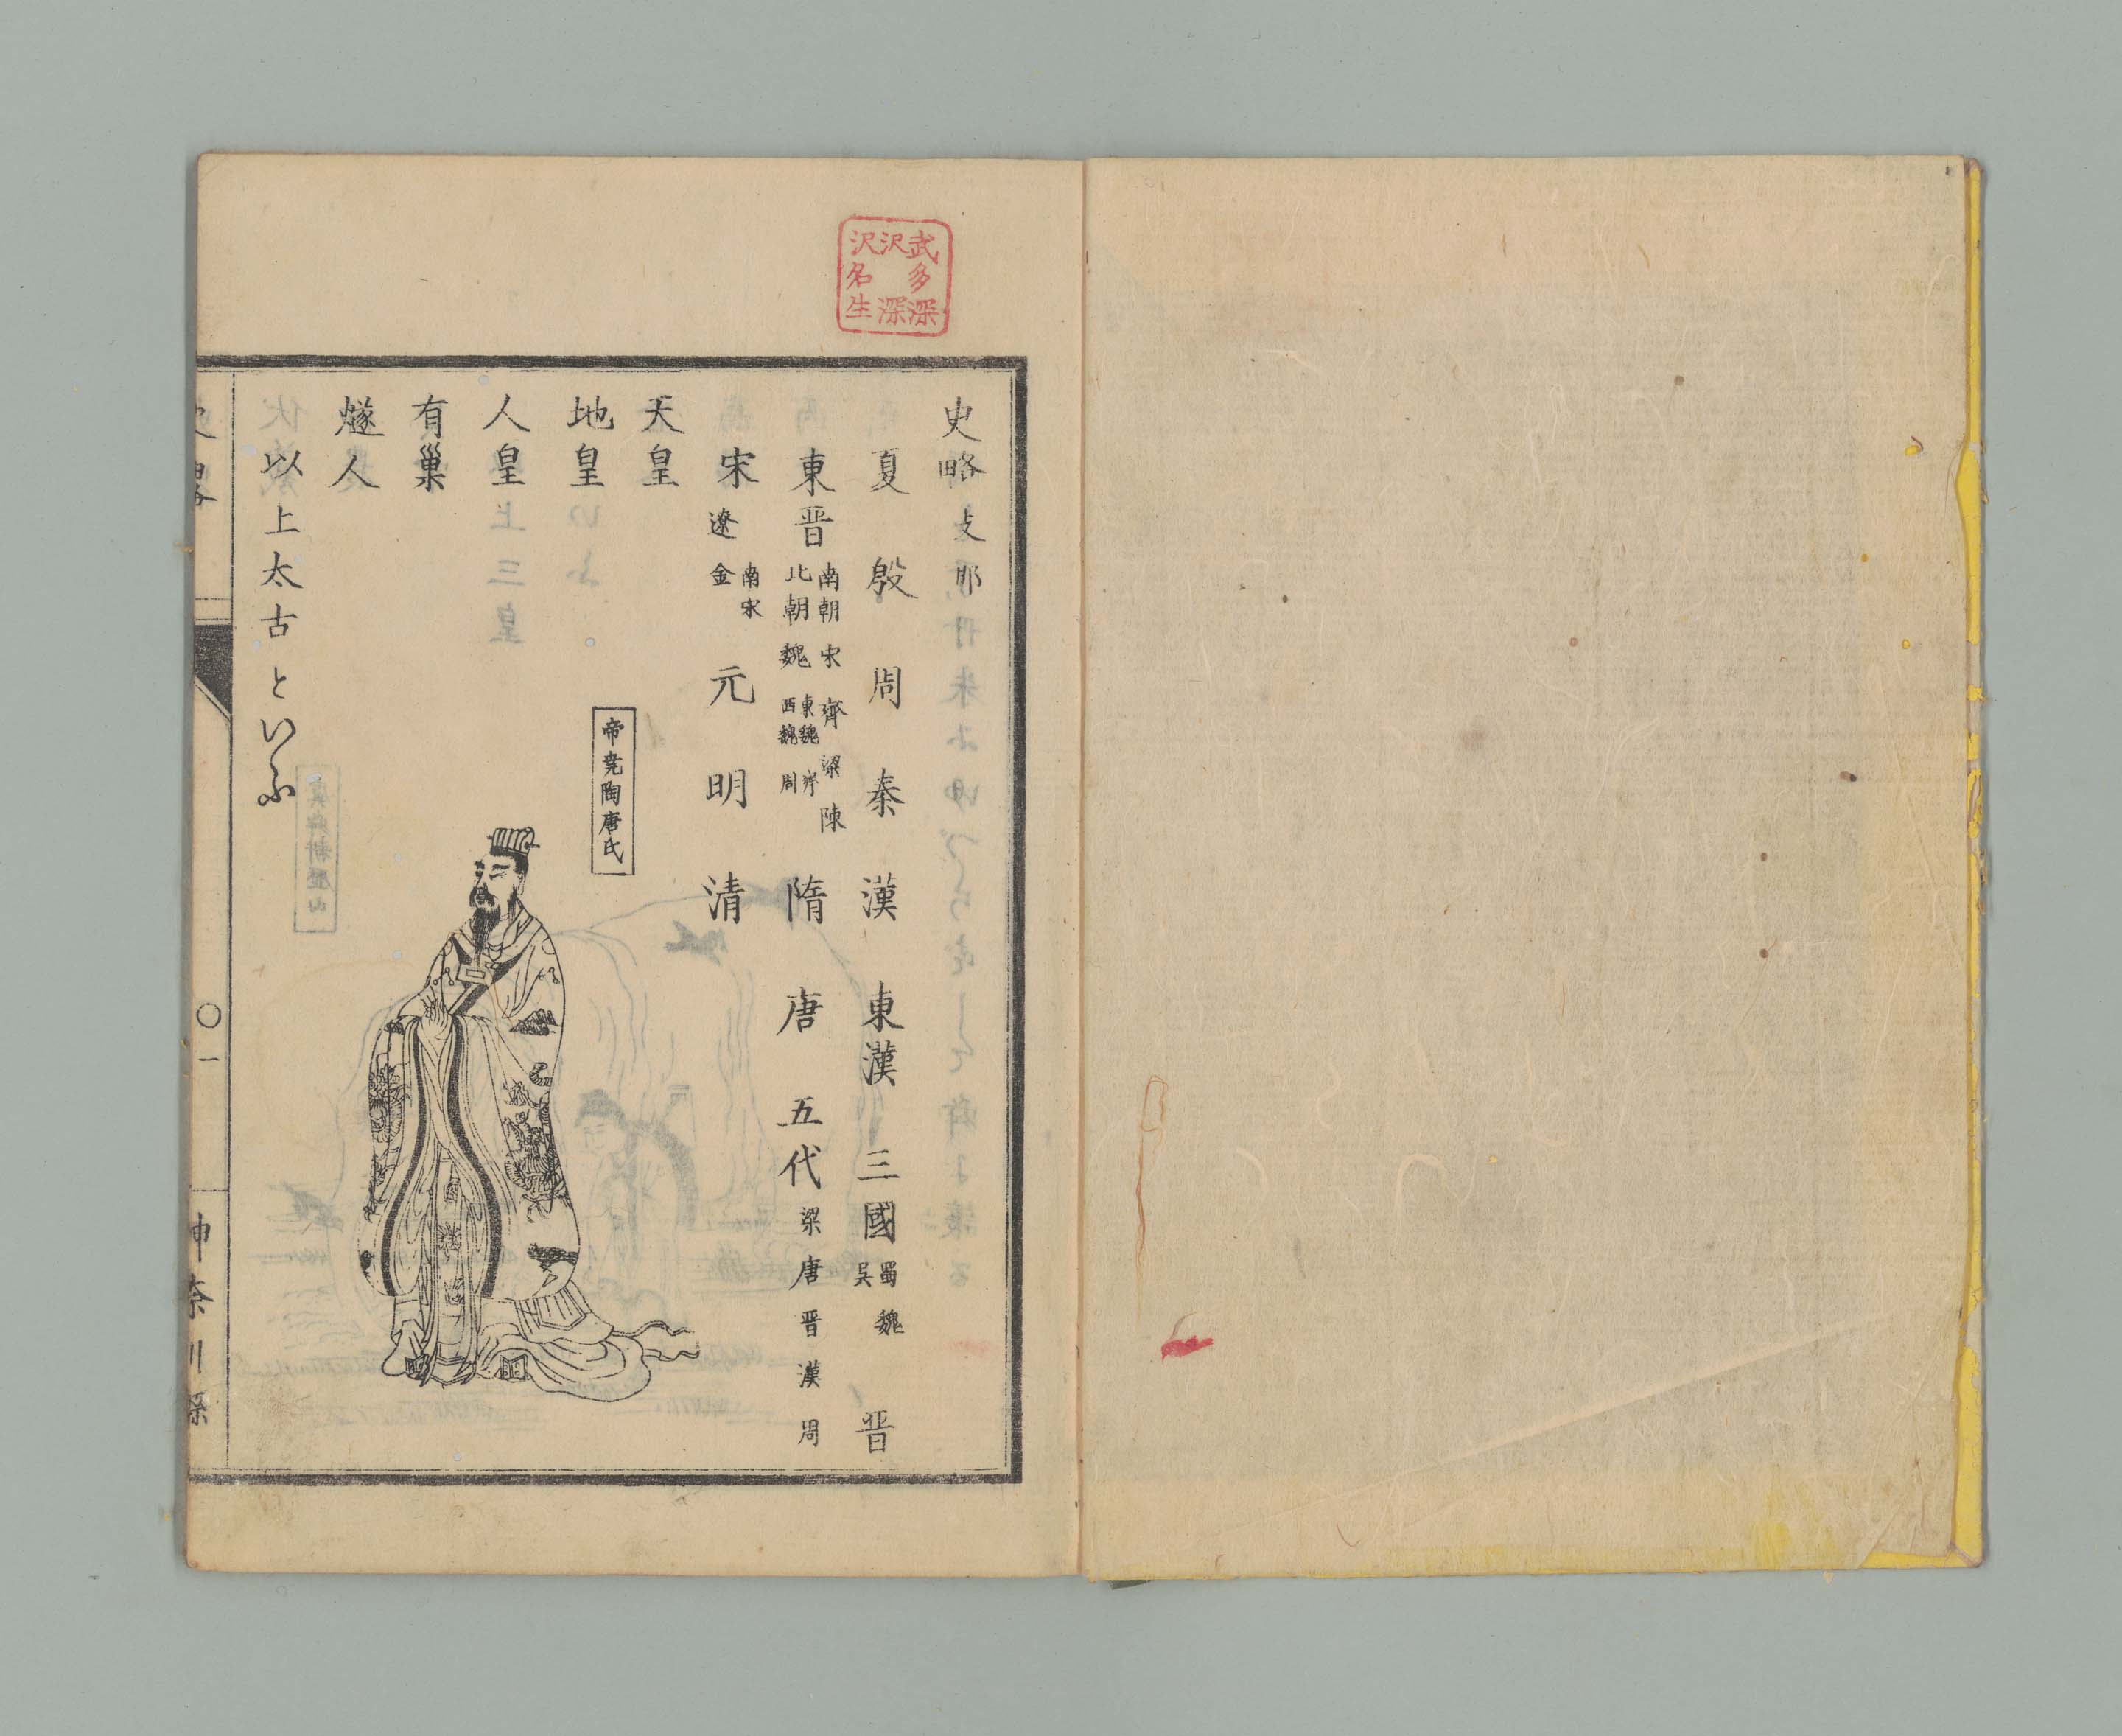 武多深
沢深
沢名生
史略 支那
夏 殷 周 秦 漢 東漢 三國 蜀魏吳 晋
東晋 南朝 宋 齊 梁 陳 北朝 魏 東魏 西魏 齊 周 隋 唐 五代 梁 唐 晋 漢 周
宋 南宋 遼 金 元 明 清
天皇
地皇
人皇
有巢
燧人
以上太古といふ
帝堯陶唐氏
史畧
〇一
神奈川縣